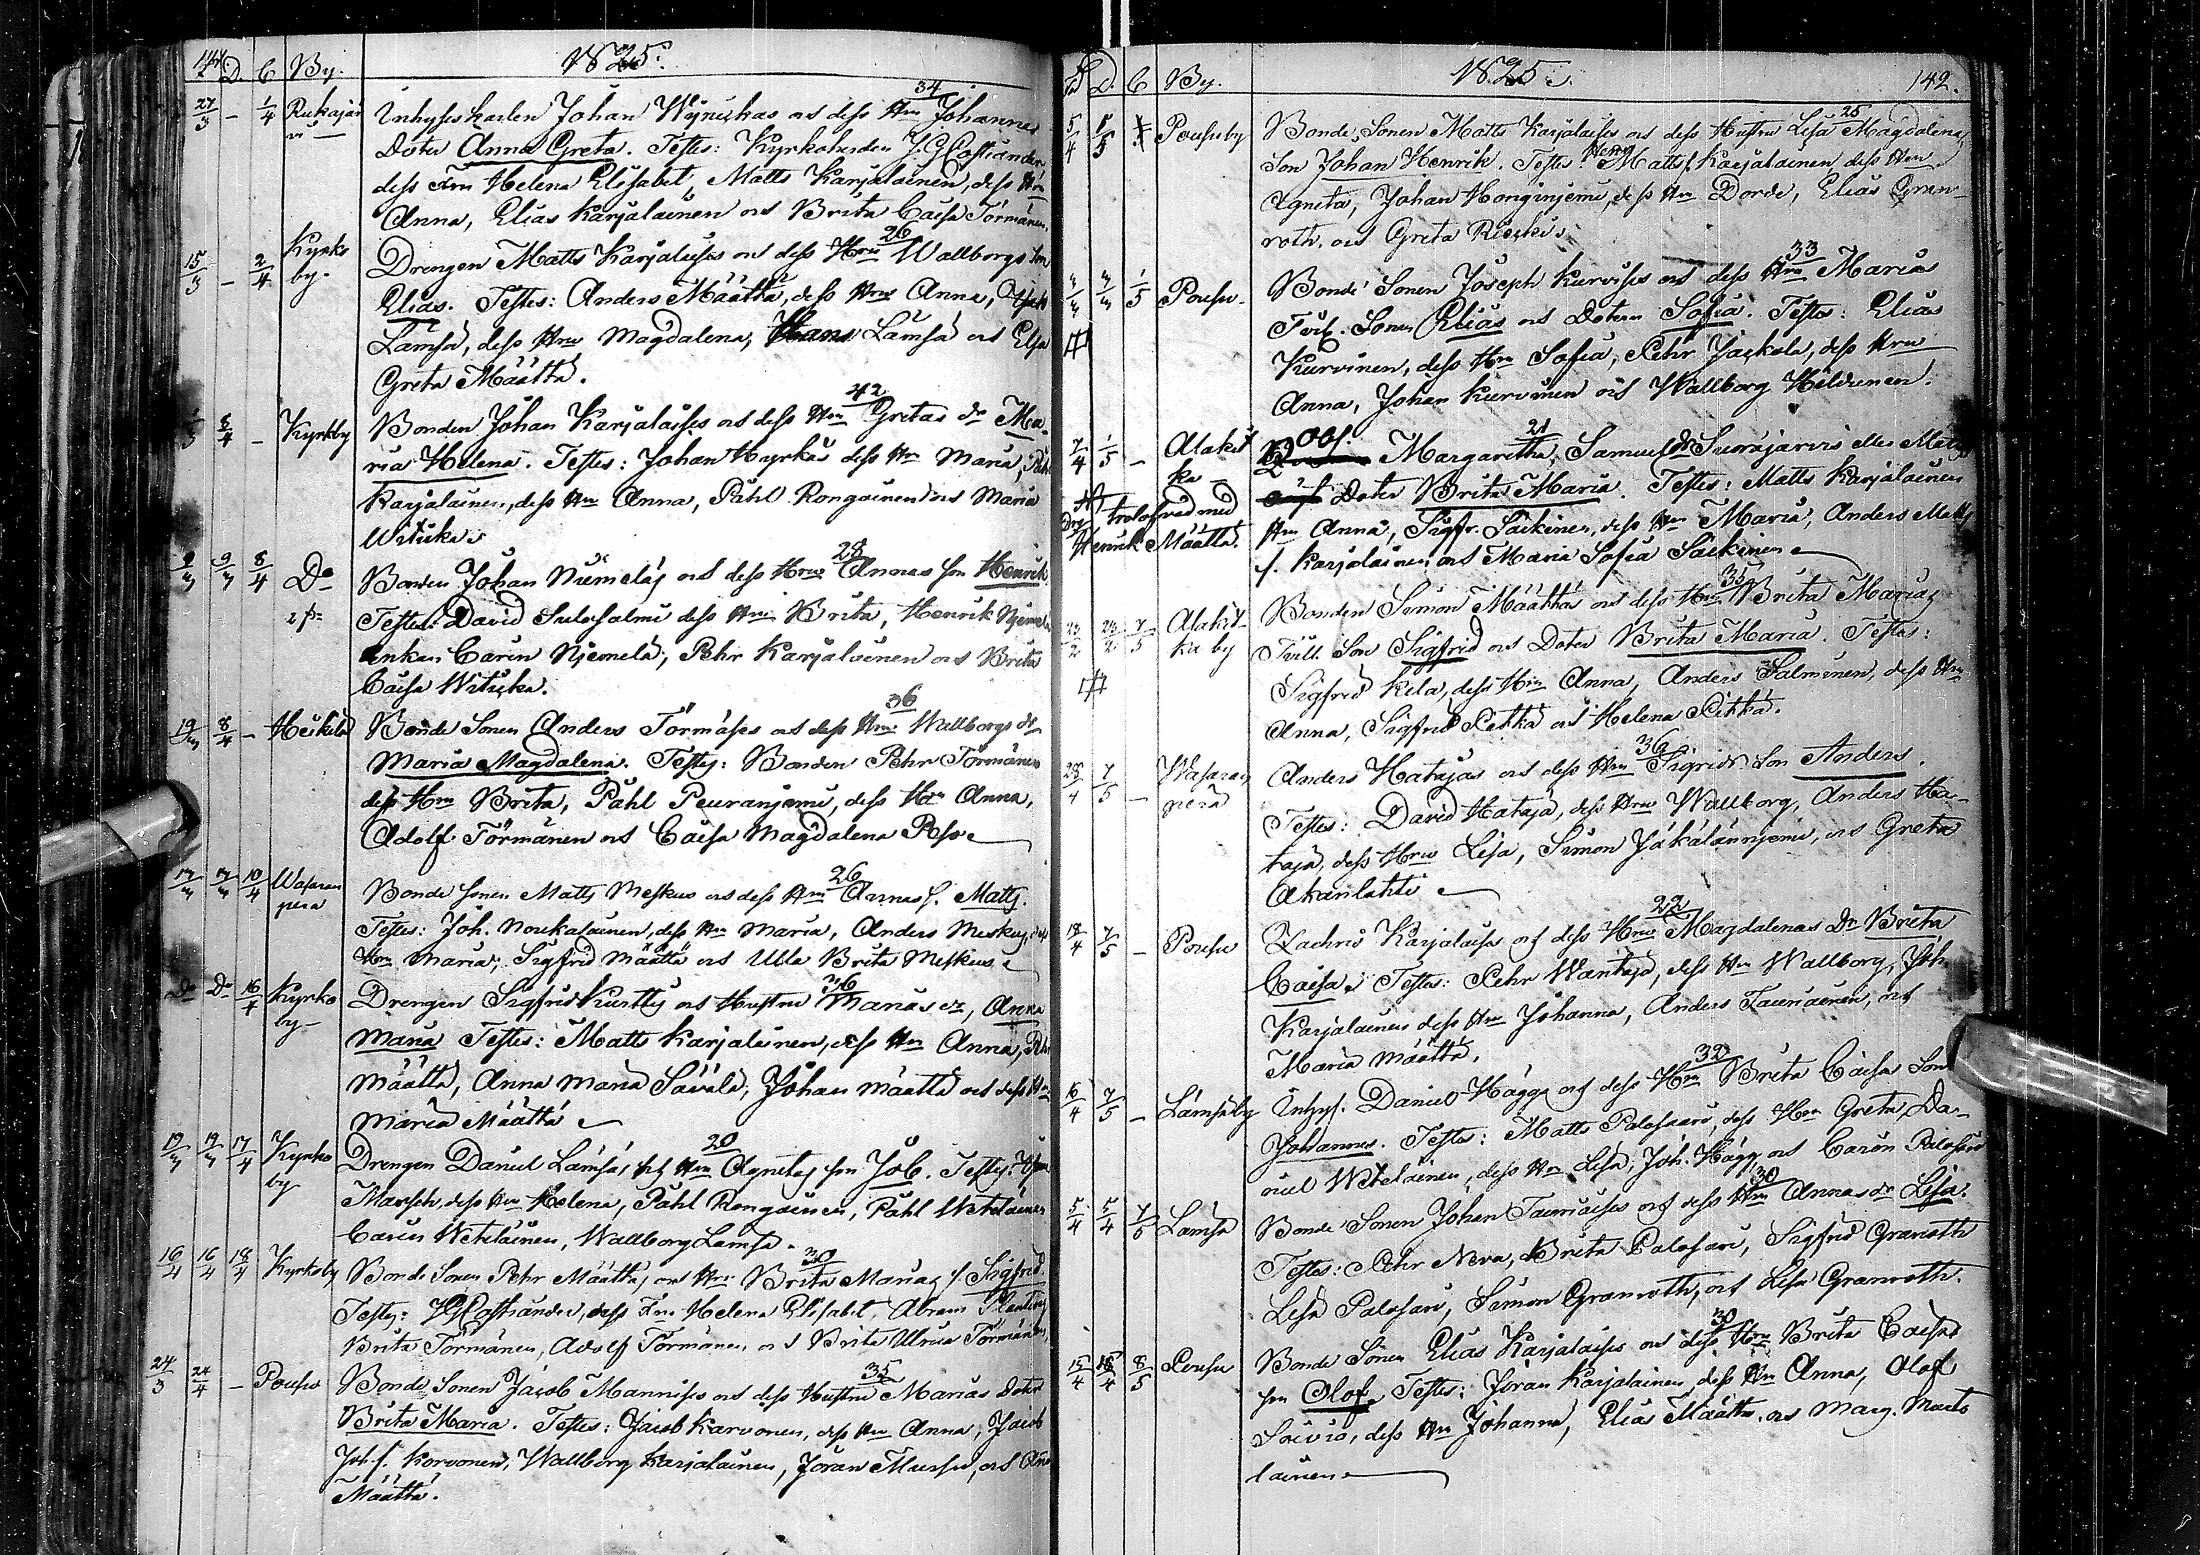 D. C By. 1825.
27/3 – 1/4 34
Inhyses karlen Johan Wyrickas och dess Hru Johannas
Doter Anna Greta. Testes: Kyrkoherden
dess Fru Helena Elisabet, Matts Karjalainen, dess Hru
Anna, Elias Karjalainen och Brita Caisa Törmänen
15/3 – 2/4 Kyrko 26
by. Drengen Matts Karjalaises och dess Hru Wallborgs Son
Elias. Testes: Anders Määttä, dess Hru Anna,
Lämsä, dess Hru Magdalena, Hans Lämsä och Elsa
Greta Määttä.
42
5/4 – Kyrkby Bonden Johan Karjalaises och dess Hru Gretas dr Ma-
ria Helena. Testes: Johan Hyrkäs dess Hru Maria,
Karjalainen, dess Hru Anna, Påhl Rongainen och Maria
Wiricka.
28
9/3 8/4 Do Bonden Johan Niemeläs och dess Hru Annas son Henrik.
Testes: David Suolosalmi dess Hru Brita, Henrik
Enkan Carin Njemelä, Pehr Karjalainen och Brita
Caisa Wiricka.
36
19/3 8/4 – Heikilä Bonde Sonen Anders Törmäses och dess Hru Wallborgs dr
Maria Magdalena. Testes: Bonden Pehr Törmänen
dess Hru Brita, Påhl Peuranjemi, dess Hru Anna,
Adolf Törmänen och Caisa Magdalena Pesso
17/3 17/3 10/4 Wasaran 26
pera Bonde Sonen Matts Meskus och dess Hru Annas s. Matts.
Testes: Joh. Noukalainen, dess Hru Maria, Anders Meskus, dess
Hru Maria, Sigfrid Määttä och Ulla Brita Meskus
36
Do Do 10/4 Kyrko Drengen Sigfrid Kurttis och Hustru Marias dr, Anna
by – Maria Testes: Matts Karjalainen, dess Hru Anna,
Määttä, Anna Maria Säväla, Johan Määttä och dess Hru
Maria Määttä
20
19/3 19/3 17/4 Kyrko Drengen Daniel Lämsäs och Hru Agnetas son Job. Testes:
by dess Hru Helena, Påhl Rongainen, Påhl Wetelainen
Carin Wetelainen, Wallborg Lamsa.
30
16/4 16/4 18/4 Kyrkoby Bonde Sonen Pehr Määttäs och Hru Brita Marias s. Sigfrid
Testes: dess Fru Helena Elisabet, Abram
Brita Törmänen, Adolf Törmänen och Brita Ulrica Törmänen.
35
24/3 24/4 – Pousu Bonde Sonen Jacob Mannises och dess Hustru Marias Doter
Brita Maria. Testes: Jacob Karvonen, dess Hru Anna, Jacob
Joh. s. Korvonen, Wallborg Karjalainen, Jöran och
Määttä.
D. C By. 1825. 142.
25
5/4 5/5 Pousuby Bonde Sonen Matts Karjalaises och dess Hustru Lisa Magdalenas
Son Johan Henrik. Testes Matts s. Karjalainen dess Hru
Agneta, Johan Honginjemi, dess Hru Dorde, Elias Gran-
roth, och Greta Riecki.
33
1/5 Pousu Bonde Sonen Joseph Kurvises och dess Hru Marias
Tvil. Sonen Elias och Doteren Sofia. Testes: Elias
Kurvinen, dess Hru Sofia, Pehr Jaskola, dess Hru
Anna, Johan Kurvinen och Wallborg Heldunen.
21
7/4 1/5 – Alakit Obs. Margaretha, Samuels dr Suonajarvis
ka Doter Brita Maria. Testes: Matts Karjalainen
trolofvad med Hru Anna, Sigfr. Säckinen, dess Hru Maria, Anders Matts
Henrik Määttä. s. Karjalainen och Maria Sofia Säckinen
35
23/2 23/2 7/5 Alakit- Bonden Simon Määttäs och dess Hru Brita Marias
ka by Tvill. Son Sigfrid och Doter Brita Maria. Testes:
Sigfrid Kela, dess Hru Anna, Anders Salminen, dess Hru
Anna, Sigfrid Pitkä och Helena Pitkä.
36
28/4 7/5 – Wasaran Anders Hatajas och dess Hru Sigrids Son Anders.
pera Testes: David Hataja, dess Hru Wallborg, Anders Ha-
taja, dess Hru Lisa, Simon Jäkäläännjemi, och Greta
Akanlahti
22
18/4 7/5 – Pousu Zachris Karjalaises och dess Hru Magdalenas Dr Brita
Caisa. Testes: Pehr Wantaja, dess Hru Wallborg, Joh.
Karjalainen dess Hru Johanna, Anders Tauriainen, och
Maria Määttä.
32
16/4 7/5 – Lämsäby Inhys. Daniel Häggs och dess Hru Brita Caisas Son
Johannes. Testes: Matts Palosaari, dess Hru Greta, Da-
niel Wetelainen, dess Hru Lisa, Joh. Hägg och Carin Palosari
30
5/4 5/4 7/5 Lamsa Bonde Sonen Johan Tauriaises och dess Hru Annas dr Lisa.
Testes: Pehr Neva, Brita Palosari, Sigfrid Granroth
Lisa Palosari, Simon Granroth, och Lisa Granroth.
30
15/4 15/4 8/5 Pousu Bonde Sonen Elias Karjalaises och dess Hru Brita Caisas
son Olof. Testes: Jöran Karjalainen, dess Hru Anna, Olof
Soivio, dess Hru Johanna, Elias Määttä och Marg. Marto
lainen